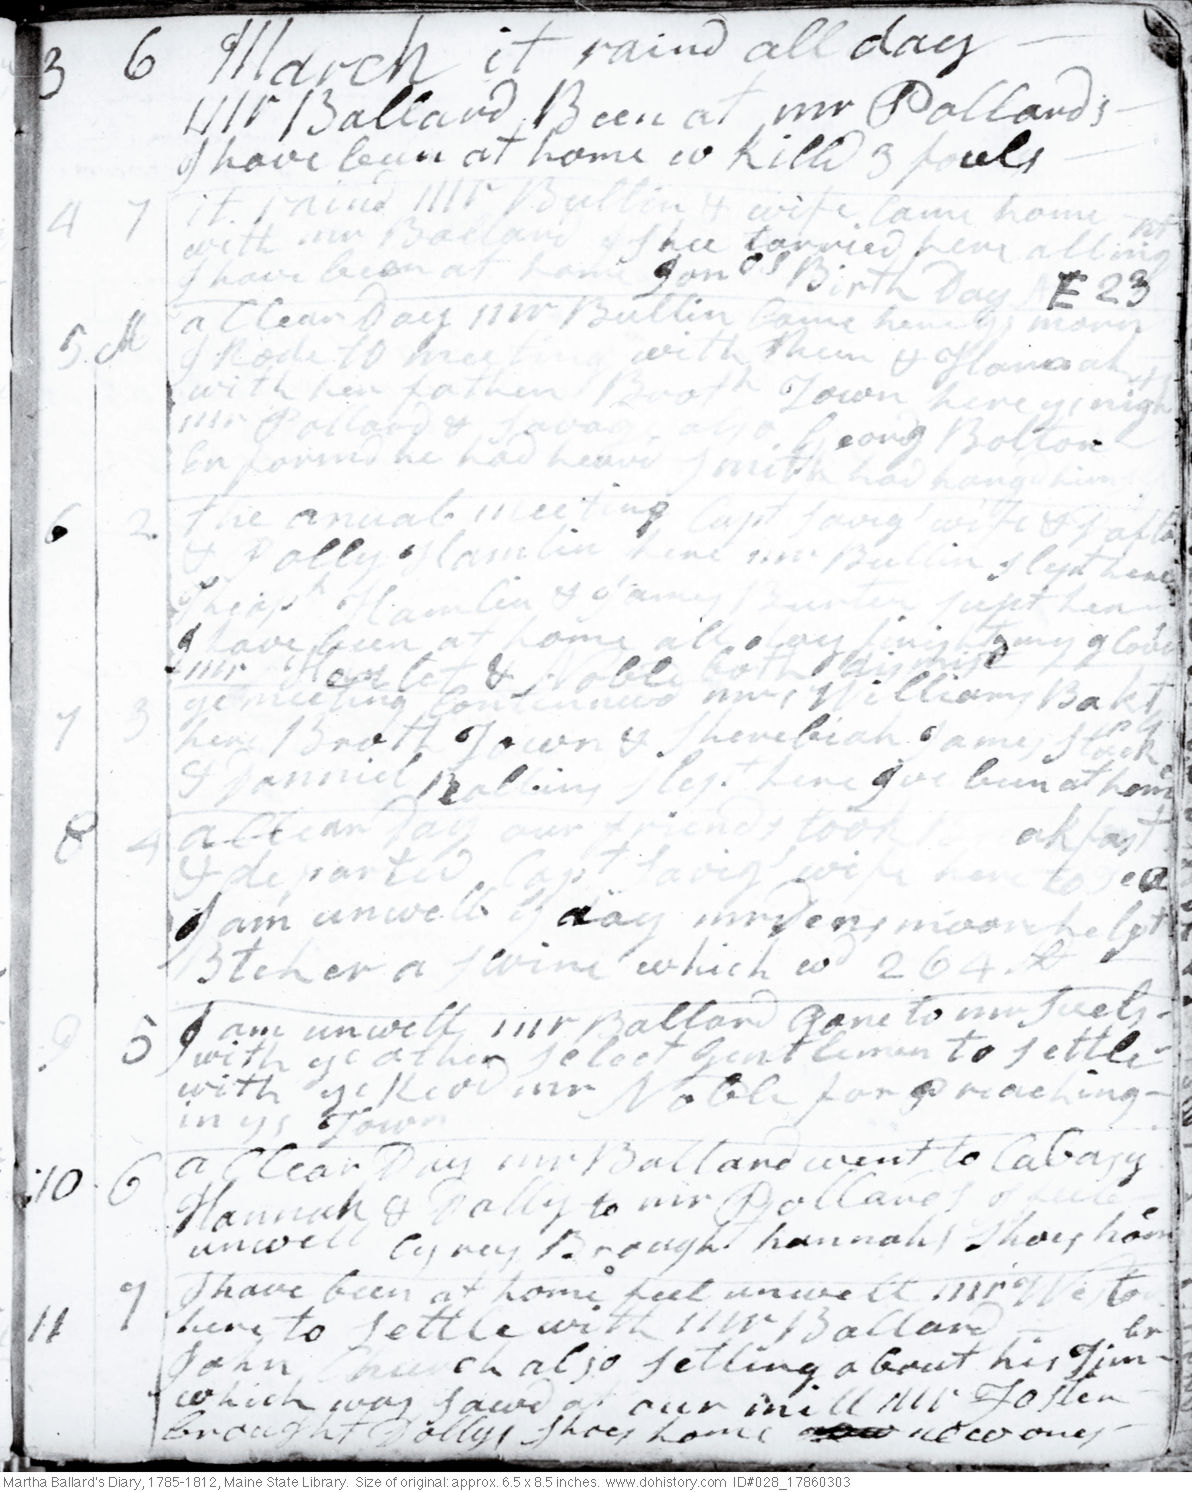 3 6 March it raind all day
Mr Ballard Been at mr Pollards
I have been at home w killd 3 fouls
4 7 it raind Mr Bullin & wife Came home
with mr Ballard & Shee tarried here all night
I have been at home Jonas Birth Day Æ 23
a Clear Day mr Bullin Came here ys morn
5 M I Rode to meeting with them & Hannah
with her father Broth Town here ys night
mr Pollard & Savage also Georg Bolton
Enformd he had heard Smith had hangd him
6 2 the anual meeting Capt Savg wife &
& Polly Hamlin here mr Bullin slept here
Theoph Hamlin & James Burten supt here
I have been at home all day finisht my glove
mr & Noble both Dismist
7 3 ye meeting Continued mrs Williams
here Broth Town & Sherebiah James
& Danniel Bolling slept here I've been at home
8 4 a Clear Day our friends took breakfast
& departed Capt Savig wife here to Tea
I am unwell ys day mr Densmoor helpt
Btcher a swine which wd 264 lb
9 5 I am unwell mr Ballard Gone to mr
with ye other select Gentlemen to settle
with ye Revd mr Noble for Preaching
in ys Town
10 6 a Clear Day mr Ballard went to Cabasy
Hannah & Dolly to mr Pollards I feele
unwell Cyrus Brought hannahs Shoes home
7 I have been at home feel unwell mr Weston
11 here to settle with Mr Ballard
John Church also setling about his Timbr
which was sawd at our mill Mr Foster
brought Dollys Shoes home new ones
Martha Ballard's Diary, 1785-1812, Maine State Library. Size of original: approx. 6.5 x 8.5 inches. www.dohistory.com ID#028_17860303